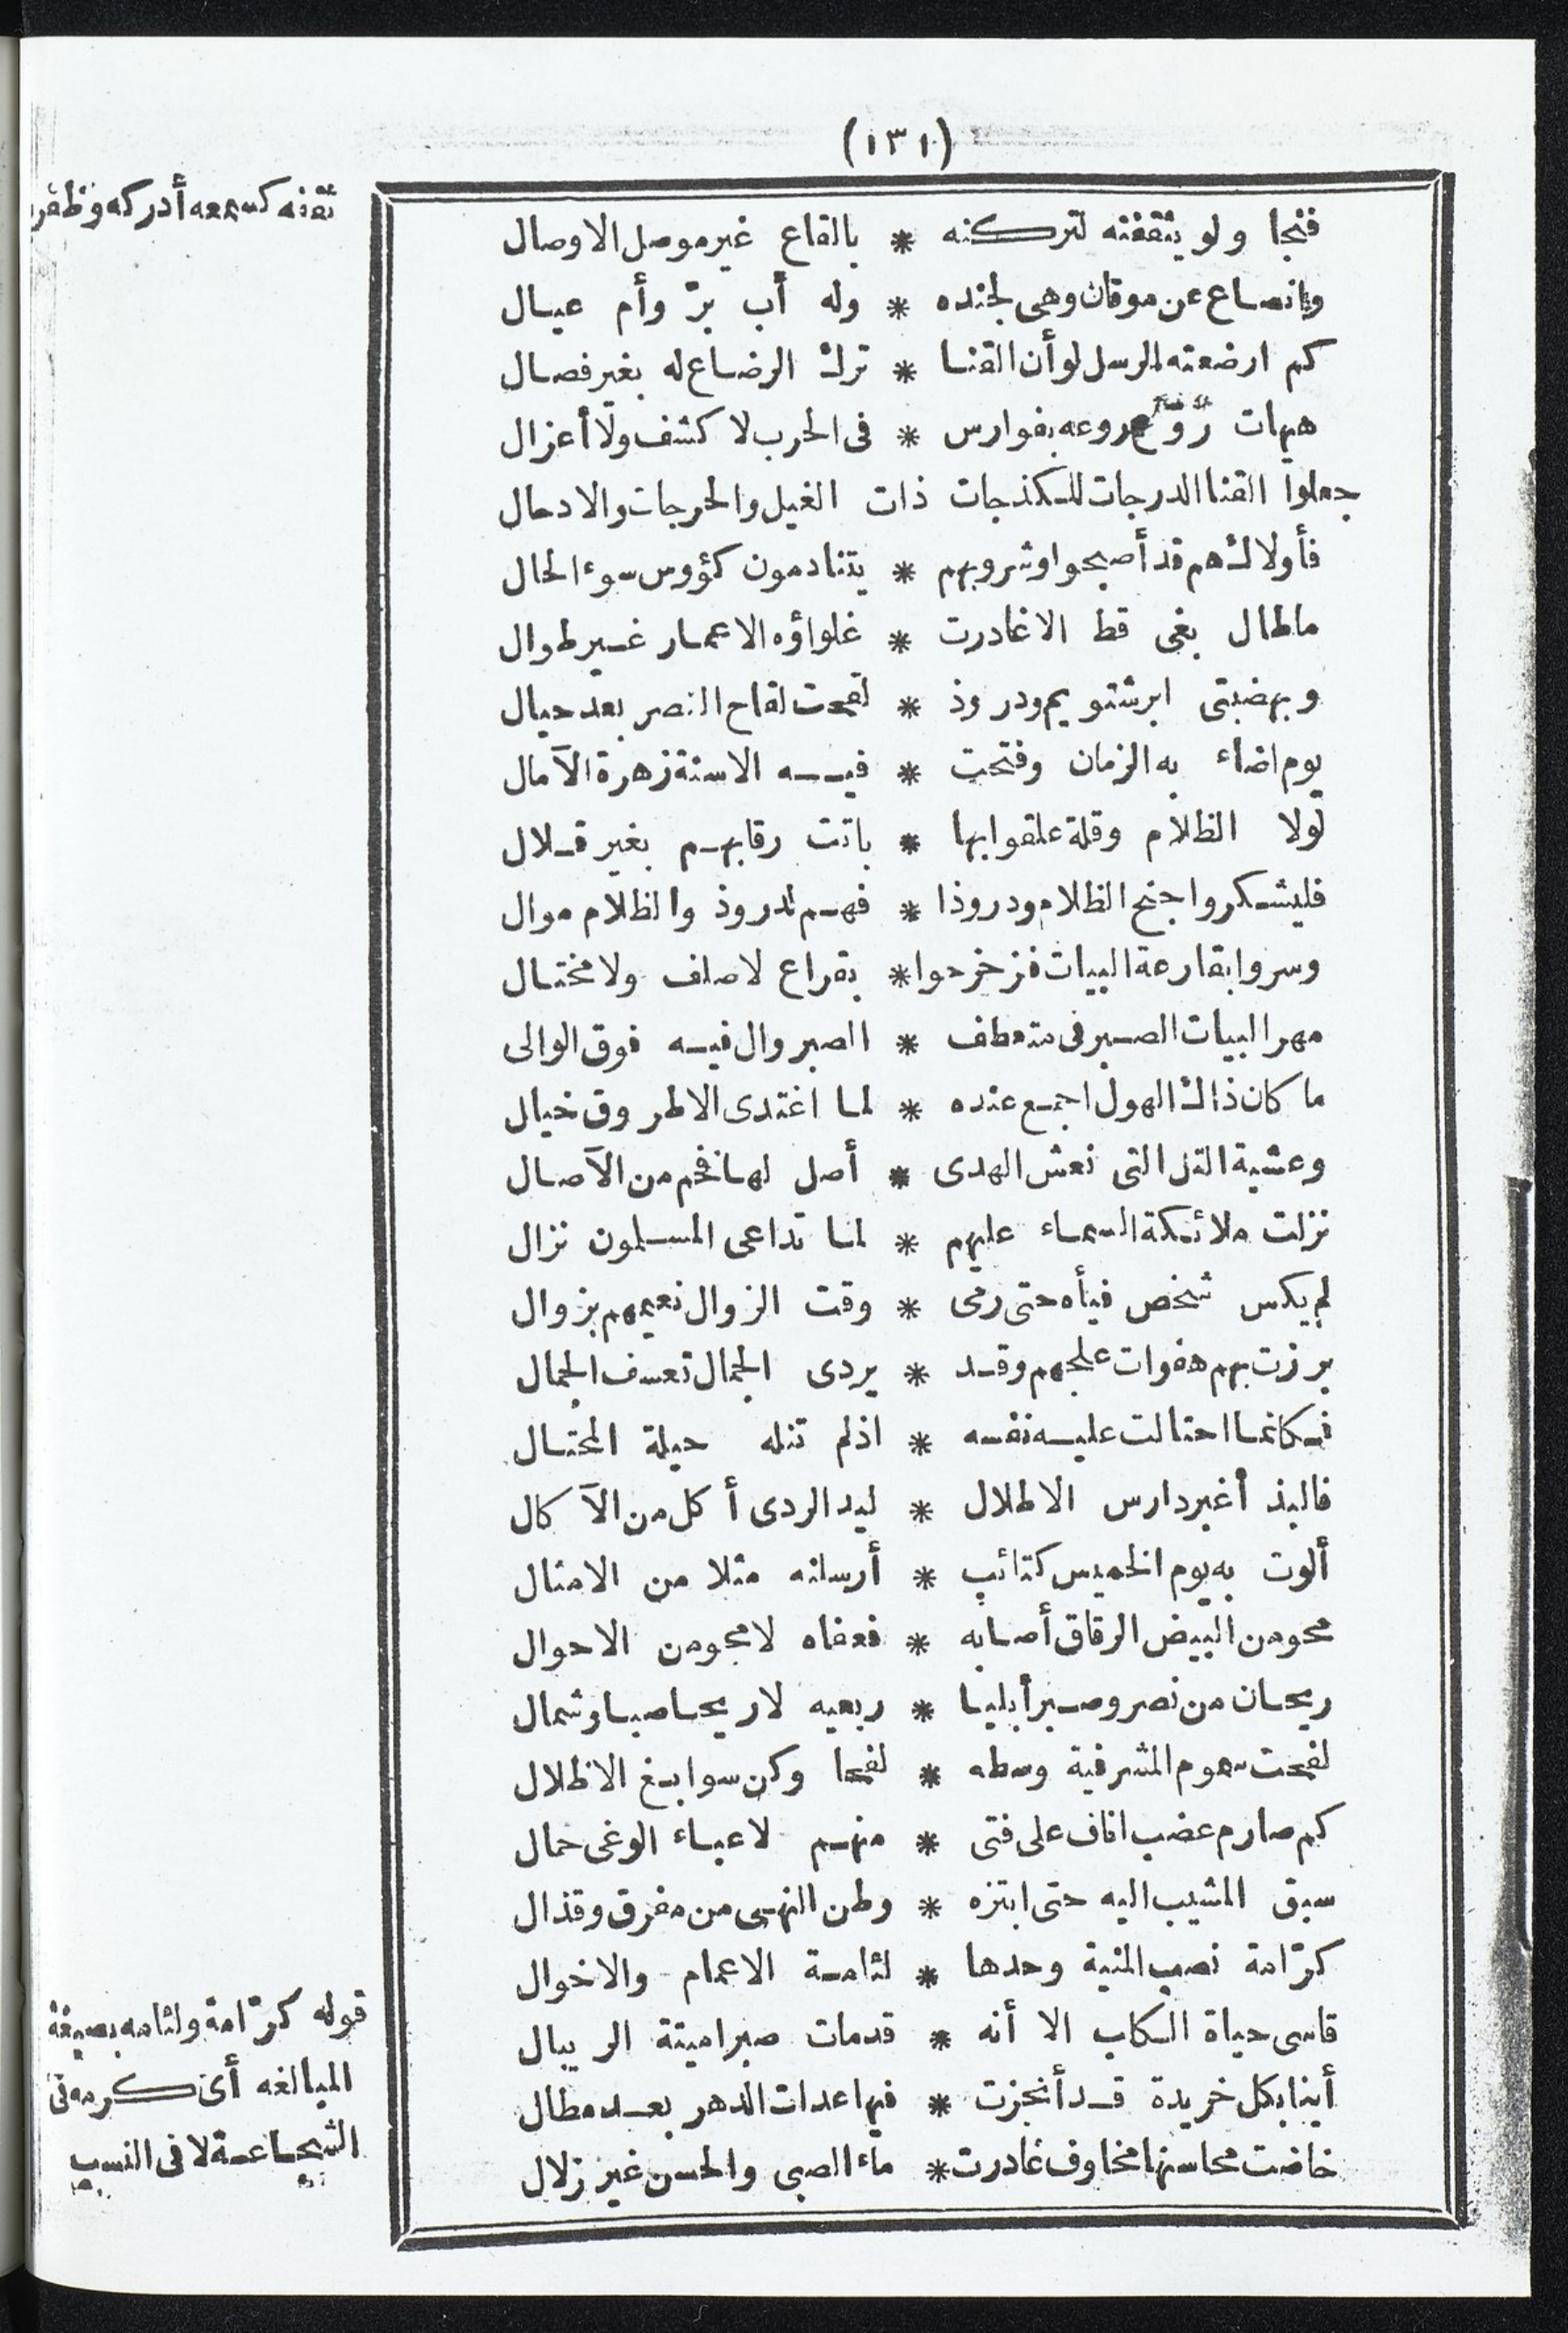 (١٣١)
ثقفه كسمعه أدركه وظفر
فنجا ولو يثقفنه لتركنه * بالقاع غير موصل الاوصال
وانصاع عن موقان وهى لجنده * وله أب برّ وأم عيال
كم ارضعته الرسل لوأن القنا * ترك الرضاع له بغير فصال
هيهات روّع روعه بفوارس * فى الحرب لا كشف ولا أعزال
جعلوا القنا الدرجات للكذجات ذات الغيل والحرجات والادحال
فأولاك هم قد أصبحوا وشروبهم * يتنادمون كؤوس سوء الحال
ماطال بغى قط الا غادرت * غلواؤه الاعمار غير طوال
وبهضبتى ابرشتويم ودروذ * لقحت لقاح النصر بعد حيال
يوم اضاء به الزمان وفتحت * فيه الاسنة زهرة الآمال
لولا الظلام وقلة علقوا بها * باتت رقابهم بغير قلال
فليشكروا جنح الظلام ودروذا * فهم لدروذ والظلام موال
وسروا بقارعة البيات فزحزحوا * بقراع لا صلف ولا مختال
مهر البيات الصبر فى متعطف * الصبر وال فيه فوق الوالى
ما كان ذاك الهول اجمع عنده * لما اغتدى الا طروق خيال
وعشية التل التى نعش الهدى * أصل لها فخم من الآصال
نزلت ملائكة السماء عليهم * لما تداعى المسلمون نزال
لم يكس شخص فيأه حتى رمى * وقت الزوال نعيمهم بزوال
برزت بهم هفوات علجهم وقد * يردى الجمال تعسف الجمال
فكانما احتالت عليه نفسه * اذ لم تنله حيلة المحتال
فالبذ أغبر دارس الاطلال * ليد الردى أكل من الآكال
ألوت به يوم الخميس كتائب * أرسلنه مثلا من الامثال
محو من البيض الرقاق أصابه * فعفاه لا محو من الاحوال
ريحان من نصر وصبر أبليا * ربعيه لا ريحا صبا وشمال
لفحت سموم المشرفية وسطه * لفحا وكن سوابغ الاظلال
كم صارم عضب اناف على فتى * منهم لاعباء الوغى حمال
سبق المشيب اليه حتى ابتزه * وطن النهى من مفرق وقذال
كرّامة نصب المنية وحدها * لئامة الاعمام والاخوال
قاسى حياة الكلب الا أنه * قد مات صبرا ميتة الريبال
أبنا بكل خريدة قد أنجزت * فيها عدات الدهر بعد مطال
خاضت محاسنها مخاوف غادرت * ماء الصبى والحسن غير زلال
قوله كرّامة ولئامه بصيغة
المبالغه أى كرمه فى
الشجاعة لا فى النسب